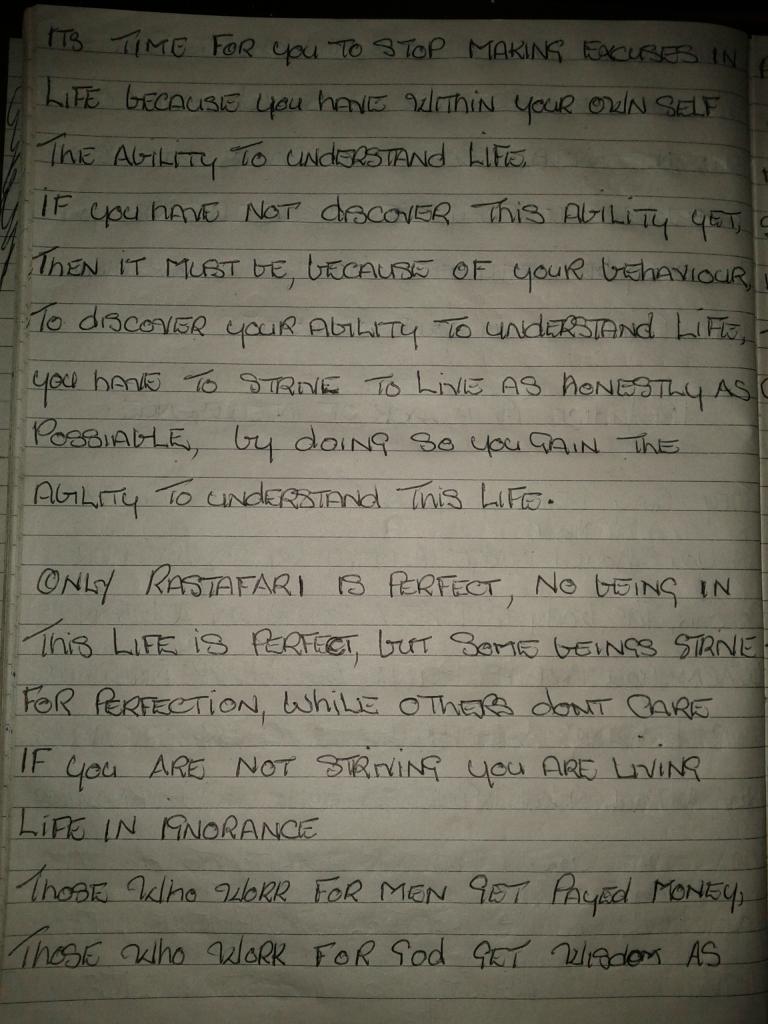 ITS TIME FOR you TO STOP MAKING EXCUSES IN
LIFE bECAUSE you hAVE WITHIN yOUR OWN SELF
ThE AbILITy To UNDERSTANd LIFE,
IF you hAVE NOT dISCOVER ThiS AbILITy yET,
ThEN IT MUST bE, bECAUSE OF yOUR bEhAVIOUR,
To dISCOVER yOUR AbILITy TO UNDERSTANd LIFE,
yOU hAVE TO STRIVE TO LIVE AS hONESTLy AS
POSSIAbLE, by dOING SO yOU GAIN ThE
AbILITy TO UNDERSTANd ThiS LIFE.
ONLy RASTAFARI IS PERFECT, NO bEING IN
ThiS LIFE iS PERFECT, bUT SOME bEINGS STRIVE
FOR PERFECTION, WhiLE OThERS dONT CARE
IF you ARE NOT STRIVING yOU ARE LIVING
LIFE IN IGNORANCE
ThOSE Who WORK FOR MEN GET PAyEd MONEy,
ThOSE Who WORK FOR God GET WISdom AS